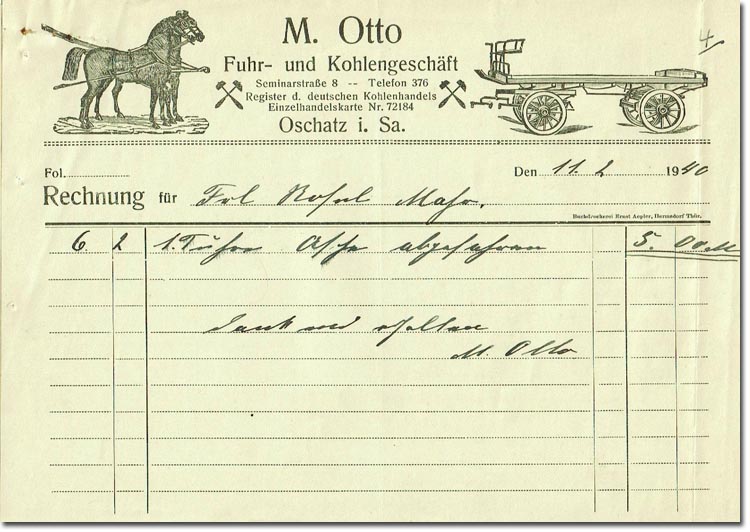 4
M. Otto
Fuhr- und Kohlengeschäft
Seminarstraße 8 -- Telefon 376
Register d. deutschen Kohlenhandels
Einzelhandelskarte Nr. 72184
Oschatz i. Sa.
Fol. Den 11. 2 1940
Rechnung für Frl Rosel Mahr.
Buchdruckerei Ernst Aepler, Hermsdorf Thür.
6. 2 1. Fuhre Asche abgefahren 5. 00 M
dankend erhalten
M. Otto